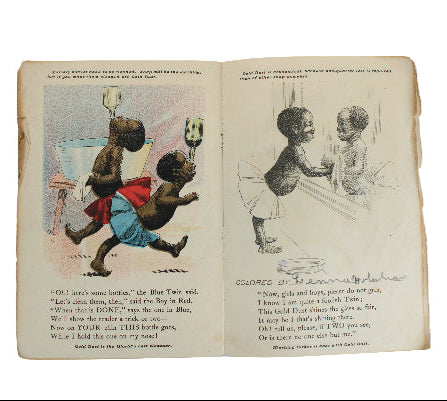 "Oh! here's some bottles," the Blue Twin said.
"Let's clean them, then," said the Boy in Red.
"When that is DONE," says the one in Blue,
We'll show the reader a trick or two—
Now on YOUR chin THIS bottle goes,
While I hold this one on my nose!
Gold Dust is the World's best cleanser.
Gold Dust is economical, because
COLORED BY
"Now, girls and boys, please do not grin,
I know I am quite a foolish Twin;
This Gold Dust shines the glass so fair,
It may be I that's shining there.
Oh! tell us, please, if TWO you see,
Or is there no one else but me."
Gold Dust.